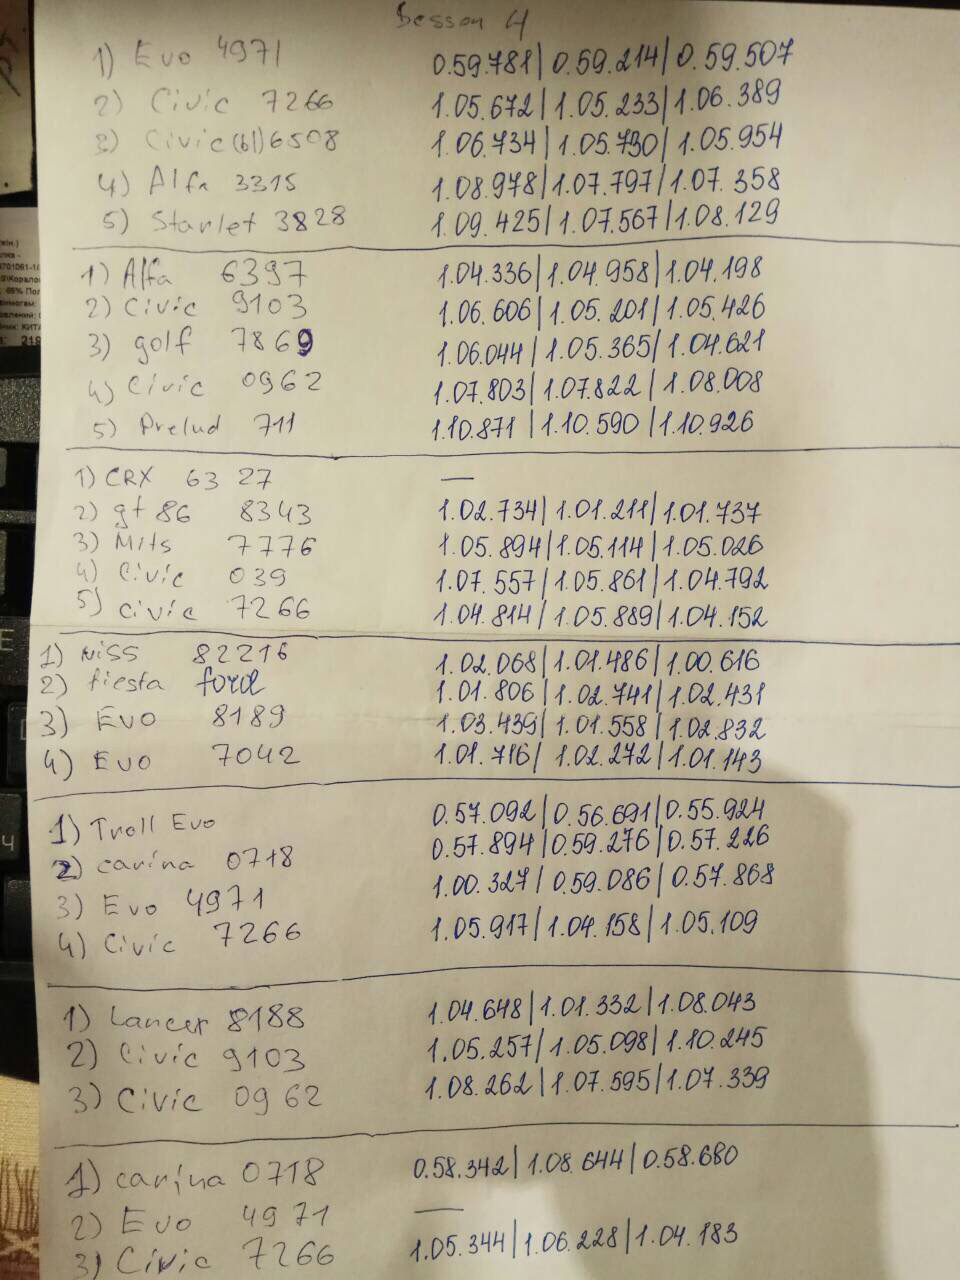 Sesson 4
1) Evo 4971 0.59.781 | 0.59.214 | 0.59.507
2) Civic 7266 1.05.672 | 1.05.233 | 1.06.389
3) Civic (bl) 6508 1.06.734 | 1.05.730 | 1.05.954
4) Alfa 3315 1.08.978 | 1.07.797 | 1.07.358
5) Starlet 3828 1.09.425 | 1.07.567 | 1.08.129
1) Alfa 6397 1.04.336 | 1.04.958 | 1.04.198
2) Civic 9103 1.06.606 | 1.05.201 | 1.05.426
3) golf 7869 1.06.044 | 1.05.365 | 1.04.621
4) Civic 0962 1.07.803 | 1.07.822 | 1.08.008
5) Prelud 711 1.10.871 | 1.10.590 | 1.10.926
1) CRX 6327 —
2) gt86 8343 1.02.734 | 1.01.211 | 1.01.737
3) Mits 7776 1.05.894 | 1.05.114 | 1.05.026
4) Civic 039 1.07.557 | 1.05.861 | 1.04.792
5) civic 7266 1.04.814 | 1.05.889 | 1.04.152
1) NiSS 82216 1.02.068 | 1.01.486 | 1.00.616
2) fiesta ford 1.01.806 | 1.02.741 | 1.02.431
3) Evo 8189 1.03.439 | 1.01.558 | 1.02.832
4) Evo 7042 1.01.716 | 1.02.272 | 1.01.143
1) Troll Evo 0.57.092 | 0.56.691 | 0.55.924
2) carina 0718 0.57.894 | 0.59.276 | 0.57.226
3) Evo 4971 1.00.327 | 0.59.086 | 0.57.868
4) Civic 7266 1.05.917 | 1.04.158 | 1.05.109
1) Lancer 8188 1.04.648 | 1.01.332 | 1.08.043
2) Civic 9103 1.05.257 | 1.05.098 | 1.10.245
3) Civic 0962 1.08.262 | 1.07.595 | 1.07.339
1) carina 0718 0.58.342 | 1.08.644 | 0.58.680
2) Evo 4971 —
3) Civic 7266 1.05.344 | 1.06.228 | 1.04.183